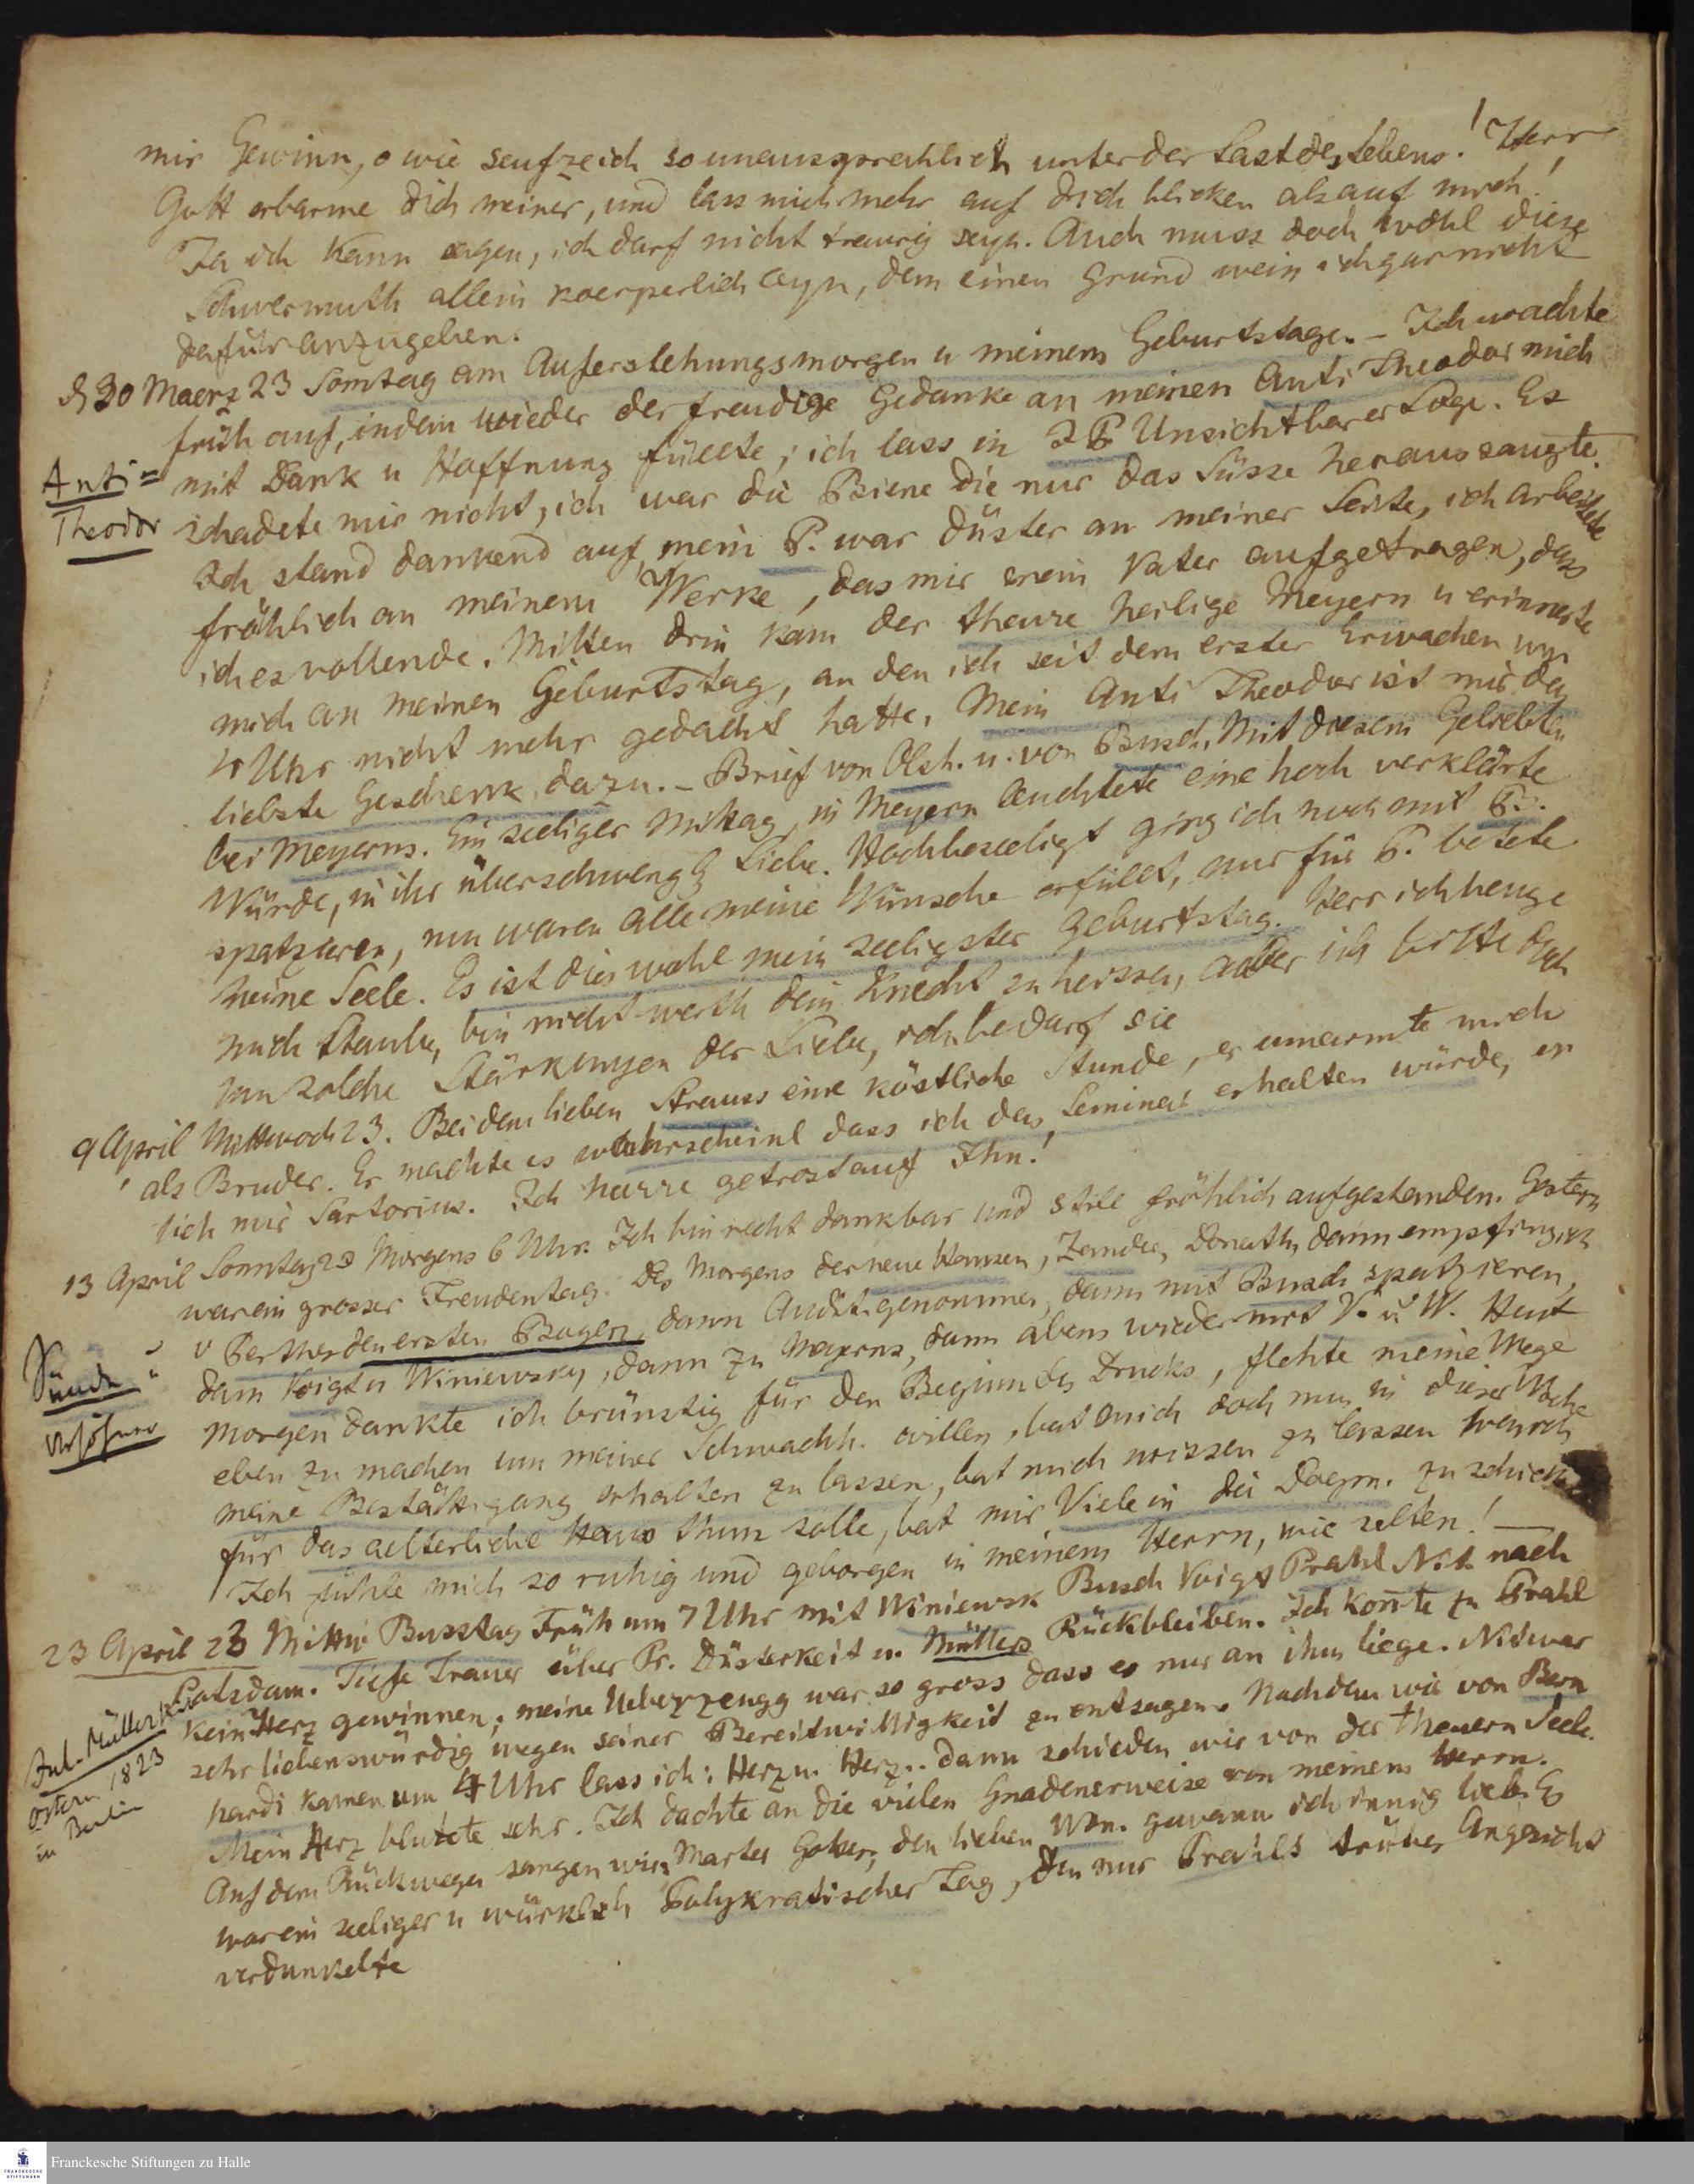 mir Gewinn, o wie seufze ich so unaussprechlich unter der Last des Lebens! Herr
Gott erbarme dich meiner, und lass mich mehr auf dich blicken als auf mich!
Ja ich kann sagen, ich darf nicht traurig seyn. Auch muss doch wohl diese
Schwermuth allein koerperlich seyn, denn einen Grund weis ich gar nicht
dafür anzugeben.
d 30 Maerz 23 Sonntag am Auferstehungsmorgen u meinem Geburtstage. – Ich wachte
früh auf, indem wieder der freudige Gedanke an meinen Anti Theodor mich
mit Dank u Hoffnung füllte; ich lass in J P. Unsichtbarer Loge. Es
Anti=
Theodor
schadete mir nicht, ich war die Biene die nur das Süsse heraussaugte.
Ich stand dankend auf, mein P. war düster an meiner Seite, ich arbeitete
fröhlich an meinem Werke, das mir mein Vater aufgetragen, dass
ich es vollende. Mitten drin kam der theure heilige Meyern u erinnerte
mich an meinen Geburtstag, an den ich seit dem ersten Erwachen um
4 Uhr nicht mehr gedacht hatte. Mein Anti Theodor ist mir das
liebste Geschenk dazu. – Brief von Olsh. u. von Busch. Mit diesem Geliebten
bei Meyerns. Ein seeliger Mittag, in Meyern leuchtete eine hoch verklärte
Würde, in ihr überschwengl Liebe. Hochbeseeligt ging ich noch mit P.
spatzieren, nun waren alle meine Wünsche erfüllt, nur für P. betete
meine Seele. Es ist dies wohl mein seeligster Geburtstag. Herr ich beuge
mich Staube, bin nicht werth dein Knecht zu heissen, aber ich bitte dich
um solche Stärkungen der Liebe, ich bedarf sie
9 April Mittwoch 23. Bei dem lieben Strauss eine köstliche Stunde, er umarmte mich
als Bruder. Er machte es wahrscheinl dass ich das Seminar erhalten würde, er
lich mir Sartorius. Ich harre getrost auf Ihn!
13 April Sonntag 23 Morgens 6 Uhr. Ich bin recht dankbar und still fröhlich aufgestanden. Gestern
war ein grosser Freudentag. Des Morgens der neue Hansen, Zander, Donath, dann empfing ich
v Perthes den ersten Bogen, dann Audit. genommen, dann mit Busch spatzieren,
Sünde u
Versöhner
dann Voigt u Winiewsky, dann zu Meyerns, dann abens wieder mit V. u W. Heut
morgen dankte ich brünstig für den Beginn des Drucks, flehte meine Wege
eben zu machen um meiner Schwachh. willen, bat mich doch nun in dieser Woche
meine Bestättigung erhalten zu lassen, bat mich wissen zu lassen was ich
für das aelterliche Haus thun solle, bat mir Viele in die Dogm. zu schicken
Ich fühle mich so ruhig und geborgen in meinem Herrn, wie selten! —
23 April 23 Mittw Busstag Früh um 7 Uhr mit Winiewsk Busch Voigt Prahl Nit. nach
Potsdam. Tiefe Trauer über Pr. Düsterkeit u. Müllers Rückbleiben. Ich konnte zu Prahl
Jul. Müller
Ostern 1823
in Berlin
kein Herz gewinnen; meine Ueberzeugg war so gross dass es nur an ihm liege. Nit war
sehr liebenswürdig wegen seiner Bereitwilligkeit zu entsagen. Nachdem wir von Bern
hardi kamen um 4 Uhr lass ich: Herz u. Herz.. dann schieden wir von der theuern Seele.
Mein Herz blutete sehr. Ich dachte an die vielen Gnadenerweise von meinem Herrn.
Auf dem Rückwege sangen wir: Marter Gottes, den lieben Wn. gewann ich innig lieb. Es
war ein seeliger u würklich Polykratischer Tag, den nur Prahls trübes Angesicht
verdunkelte
Franckesche Stiftungen zu Halle